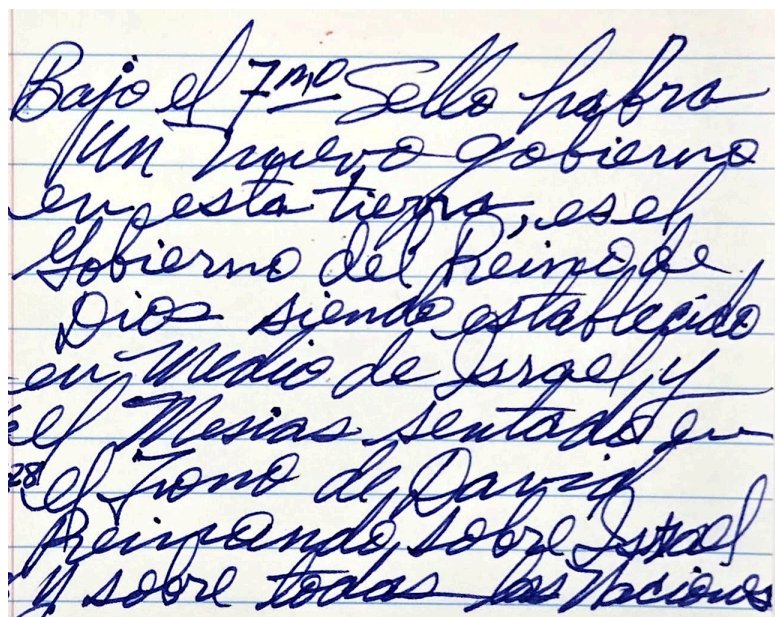 Bajo el 7mo Sello habra
Un nuevo gobierno
en esta tierra, es el
Gobierno del Reino de
Dios siendo establecido
en Medio de Israel, y
el Mesias sentado en
28 el Trono de David
Reinando sobre Israel
y sobre todas las Naciones